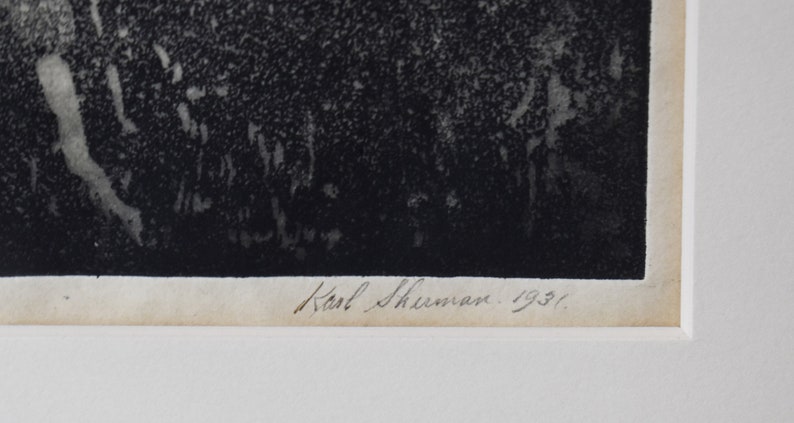 Karl Sherman. 1931.